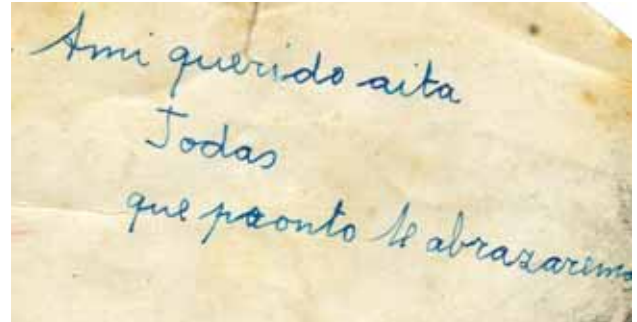 Ami querido aita
Todas
que pronto te abrazaremos